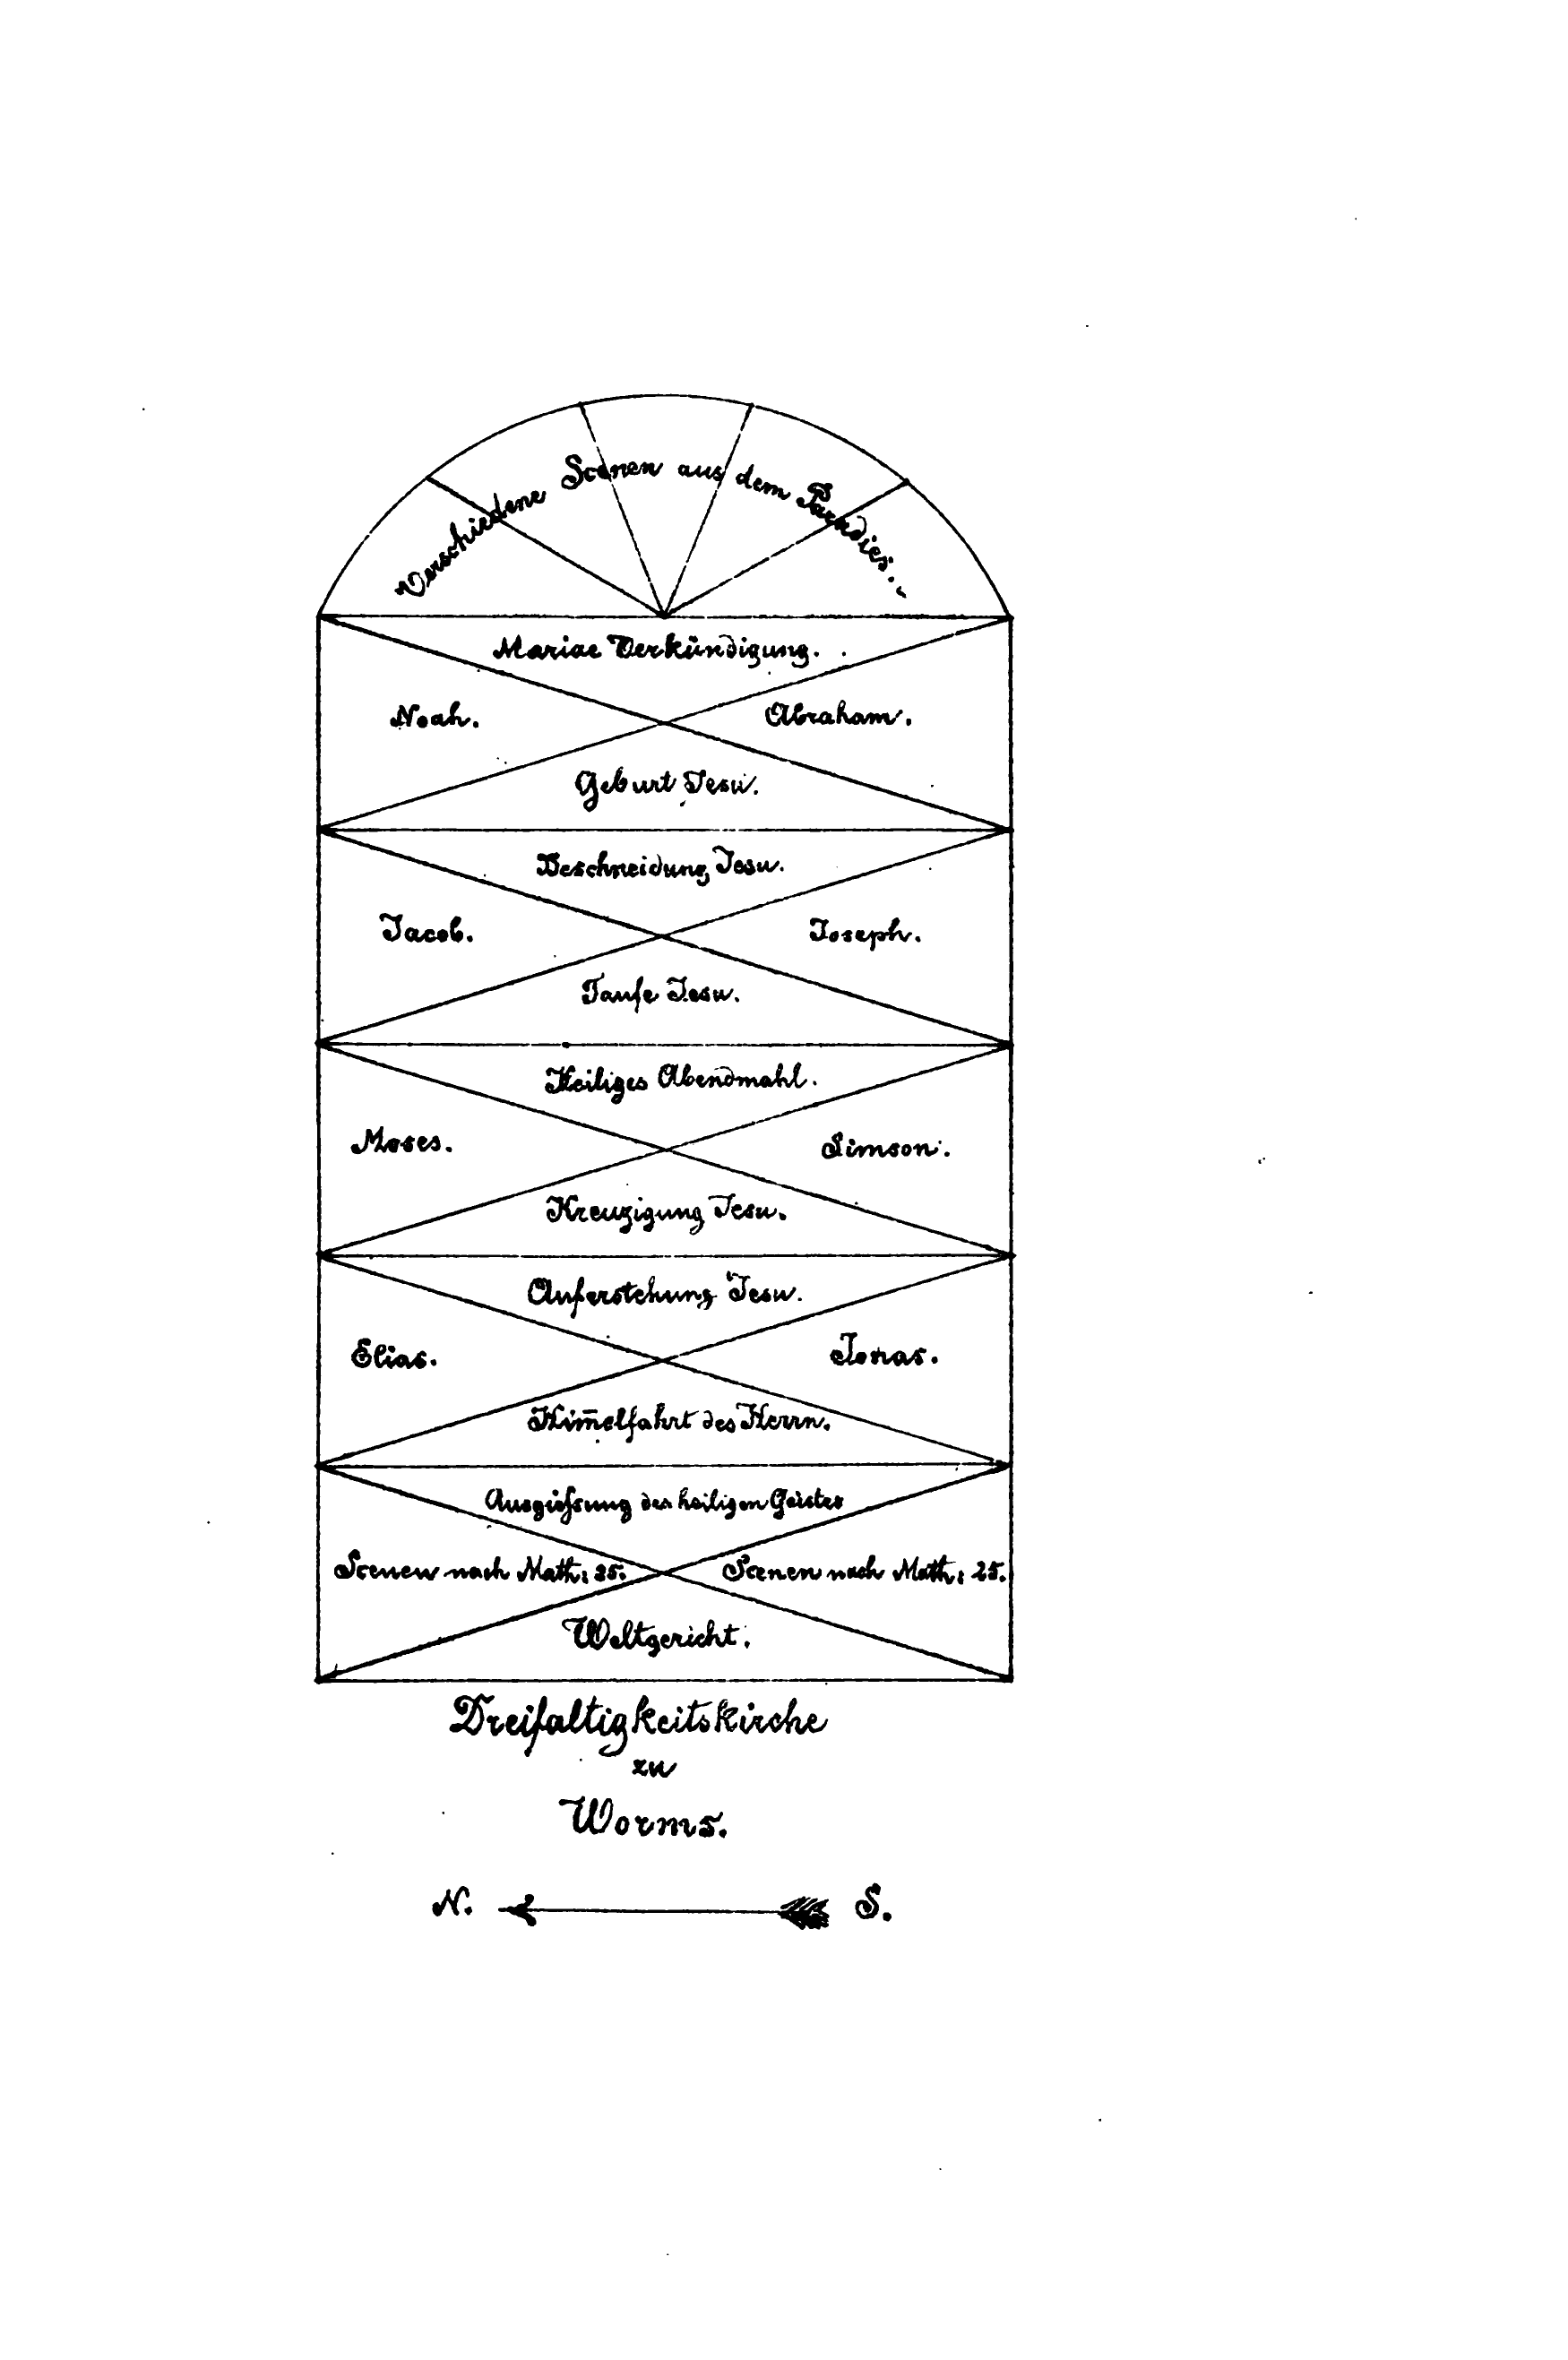 Verschiedene Scenen aus dem Paradies.
Mariae Verkündigung.
Noah. Abraham.
Geburt Jesu.
Beschneidung Jesu.
Jacob. Joseph.
Taufe Jesu.
Heiliges Abendmahl.
Moses. Simson.
Kreuzigung Jesu.
Auferstehung Jesu.
Elias. Jonas.
Him̄elfahrt des Herrn.
Ausgießung des heiligen Geistes
Scenen nach Math: 25. Scenen nach Math: 25.
Weltgericht.
Dreifaltigkeitskirche
zu
Worms.
N. S.